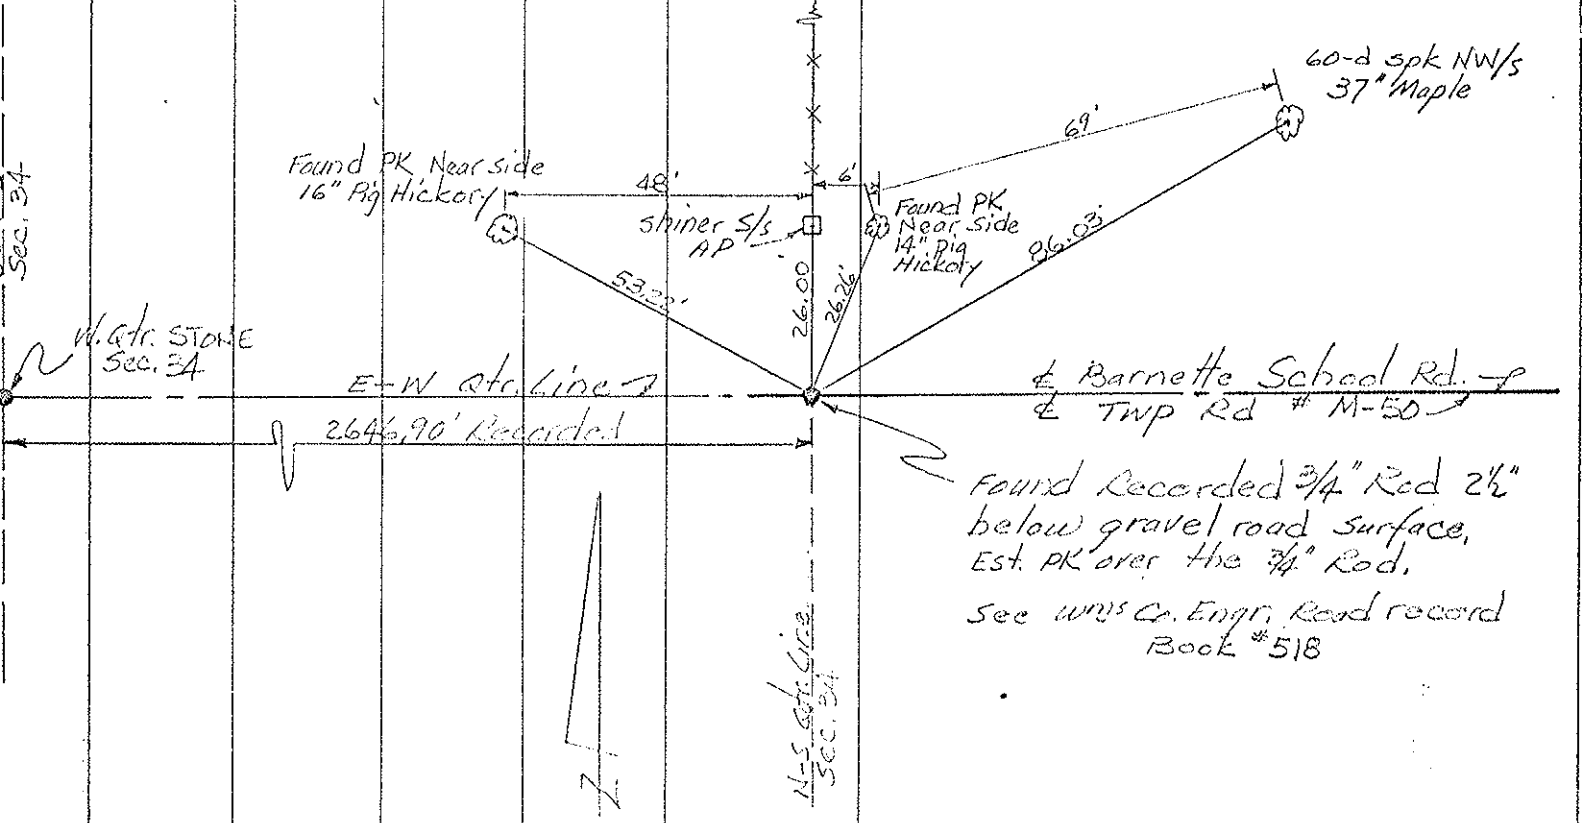 60-d spk NW/s
37" Maple
69'
Found PK Near side
16" Pig Hickory
48'
6'
Sec. 34
shiner S/s
AP
Found PK
Near Side
14" Pig
Hickory
53.22'
26.00
26.26'
96.03'
W. Qtr. STONE
Sec. 34
E-W Qtr. Line
⅊ Barnette School Rd.
⅊ Twp Rd # M-50
2646.90' Recorded
Found Recorded 3/4" Rod 2½"
below gravel road surface.
Est. PK over the 3/4" Rod.
See Wms Co. Engr. Road record
Book #518
N-S Qtr. Line
Sec. 34
N